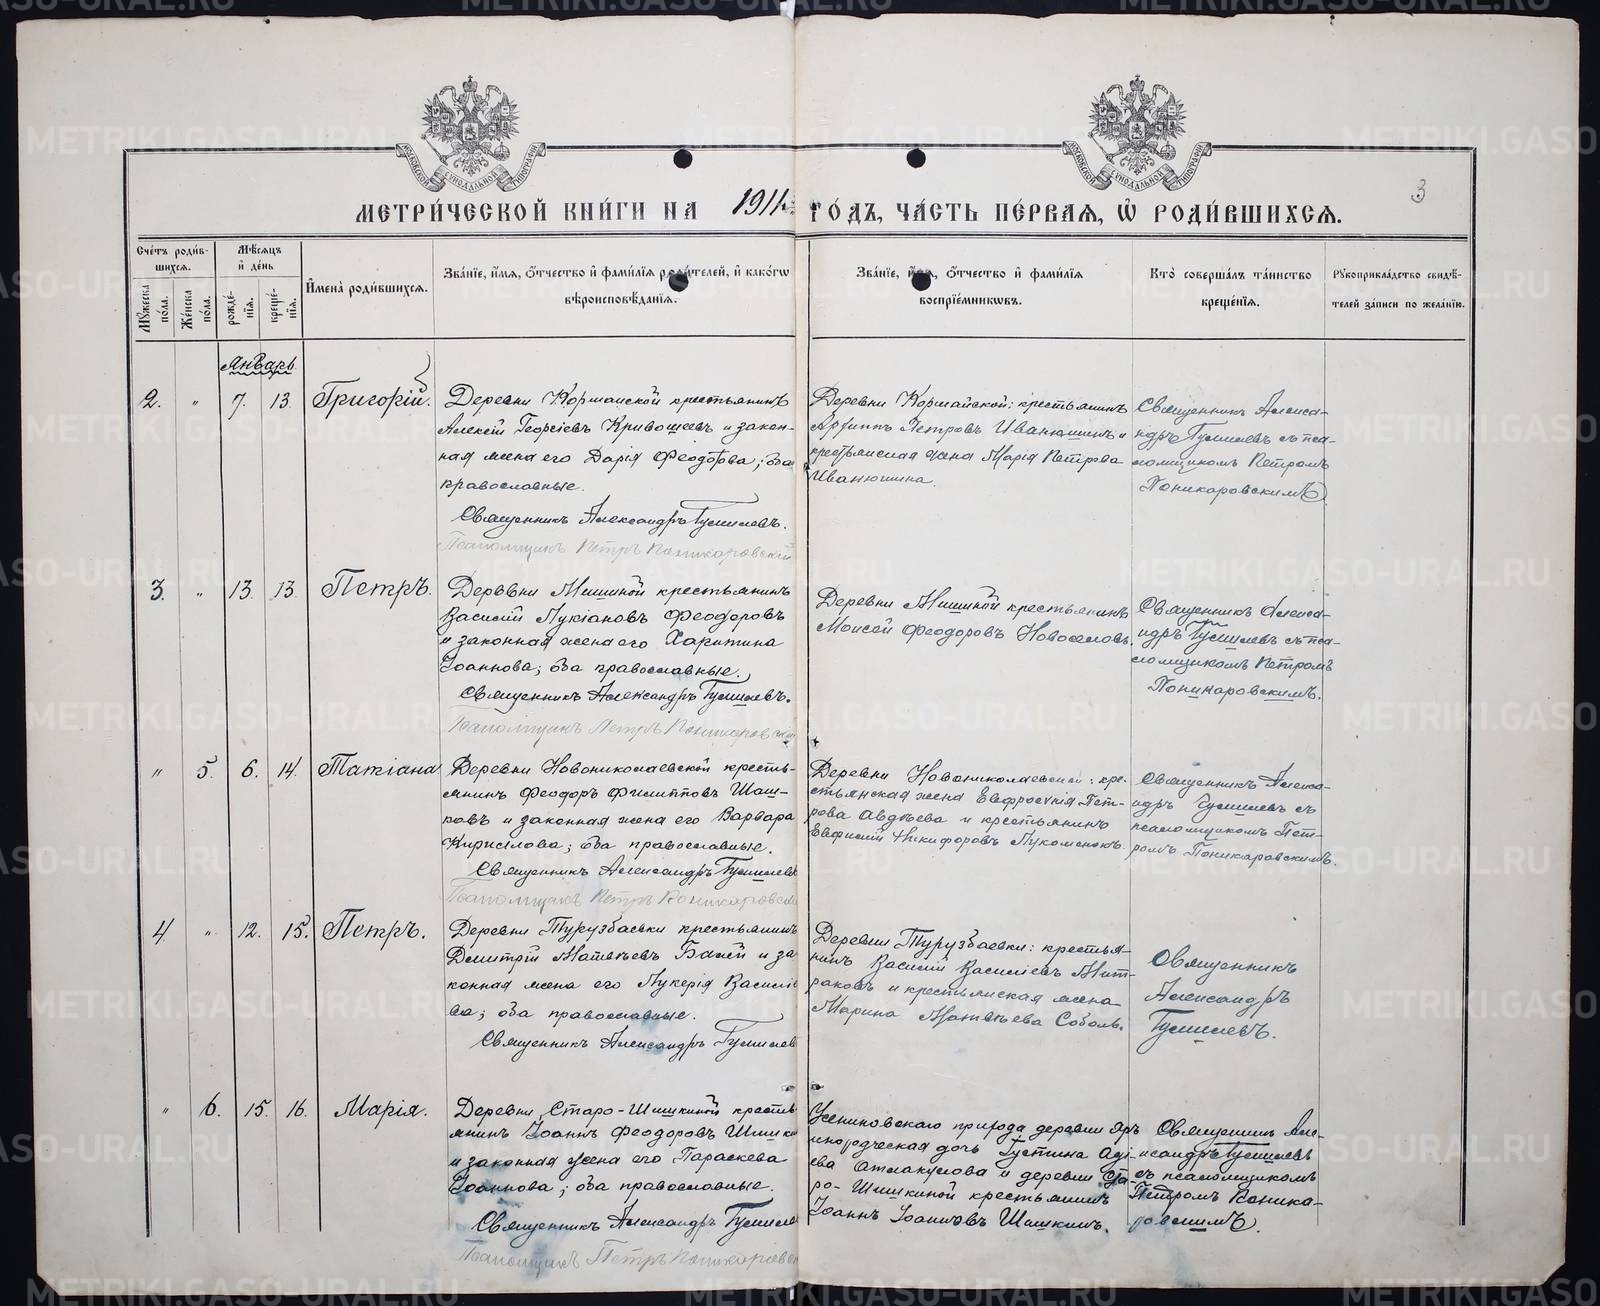 МЕТРИ́ЧЕСКОЙ КНИ́ГИ НА 1911 ГО́ДЪ, ЧА́СТЬ ПЕ́РВАЯ, Ѡ҆ РОДИ́ВШИХСЯ.
3
Сче́тъ роди́вшихся.
Мѣ́сяцъ и҆ де́нь
Му́жеска по́ла.
Же́нска по́ла.
рожде́нїя.
креще́нїя.
И҆мена̀ роди́вшихся.
Зва́нїе, и҆́мя, ѻ҆́тчество и҆ фами́лїя роди́телей, и҆ како́гѡ
вѣроисповѣ́данїя.
Зва́нїе, и҆́мя, ѻ҆́тчество и҆ фами́лїя
воспрїе́мникѡвъ.
Кто̀ соверша́лъ та́инство
креще́нїя.
Рукоприкла́дство свидѣ́-
телей за́писи по жела́нїю.
Январь.
2. " 7. 13. Григорій.
Деревни Кормайской крестьянинъ
Алексій Георгіевъ Кривошеевъ и закон-
ная жена его Дарія Феодорова; оба
православные.
Священникъ Александръ
Псаломщикъ Петръ Поникаровскій
Деревни Кормайской: крестьянинъ
Петровъ Иванюшинъ и
крестьянская жена Марія Петрова
Иванюшина.
Священникъ Алекса-
ндръ съ пса-
ломщикомъ Петромъ
Поникаровскимъ
3. " 13. 13. Петръ.
Деревни Мишиной крестьянинъ
Василій Лукіановъ Феодоровъ
и законная жена его Харитина
Іоаннова; оба православные.
Священникъ Александръ
Псаломщикъ Петръ Поникаровскій
Деревни Мишиной крестьянинъ
Моисей Феодоровъ Новоселовъ.
Священникъ Алекса-
ндръ съ пса-
ломщикомъ Петромъ
Поникаровскимъ.
" 5. 6. 14. Татіана
Деревни Новониколаевской кресть-
янинъ Феодоръ Филипповъ Шаш-
ковъ и законная жена его Варвара
Кирилова; оба православные.
Священникъ Александръ
Псаломщикъ Петръ Поникаровскій
Деревни Новониколаевской: кре-
стьянская жена Евфросинія Пет-
рова Авдѣева и крестьянинъ
Евфимій Никифоровъ
Священникъ Алекса-
ндръ съ
псаломщикомъ Пет-
ромъ Поникаровскимъ.
4. " 12. 15. Петръ.
Деревни Турузбаевки крестьянинъ
Димитрій Матвѣевъ и за
конная жена его Лукерія Василіе
ва; оба православные.
Священникъ Александръ
Деревни Турузбаевки: крестья-
нинъ Василій Василіевъ Мит-
раковъ и крестьянская жена
Марина Матвѣева Соболь.
Священникъ
Александръ
" 6. 15. 16. Марія.
Деревни Старо-Шишкиной кресть
янинъ Іоаннъ Феодоровъ Шишки
и законная жена его Параскева
Іоаннова; оба православные.
Священникъ Александръ
Псаломщикъ Петръ Поникаровск
прихода деревни
инородческая дочь Густина
и деревни Ста-
ро-Шишкиной крестьянинъ
Іоаннъ Іоанновъ Шишкинъ.
Священникъ Але-
ксандръ
съ псаломщикомъ
Петромъ Поника-
ровскимъ.
METRIKI.GASO-URAL.RU